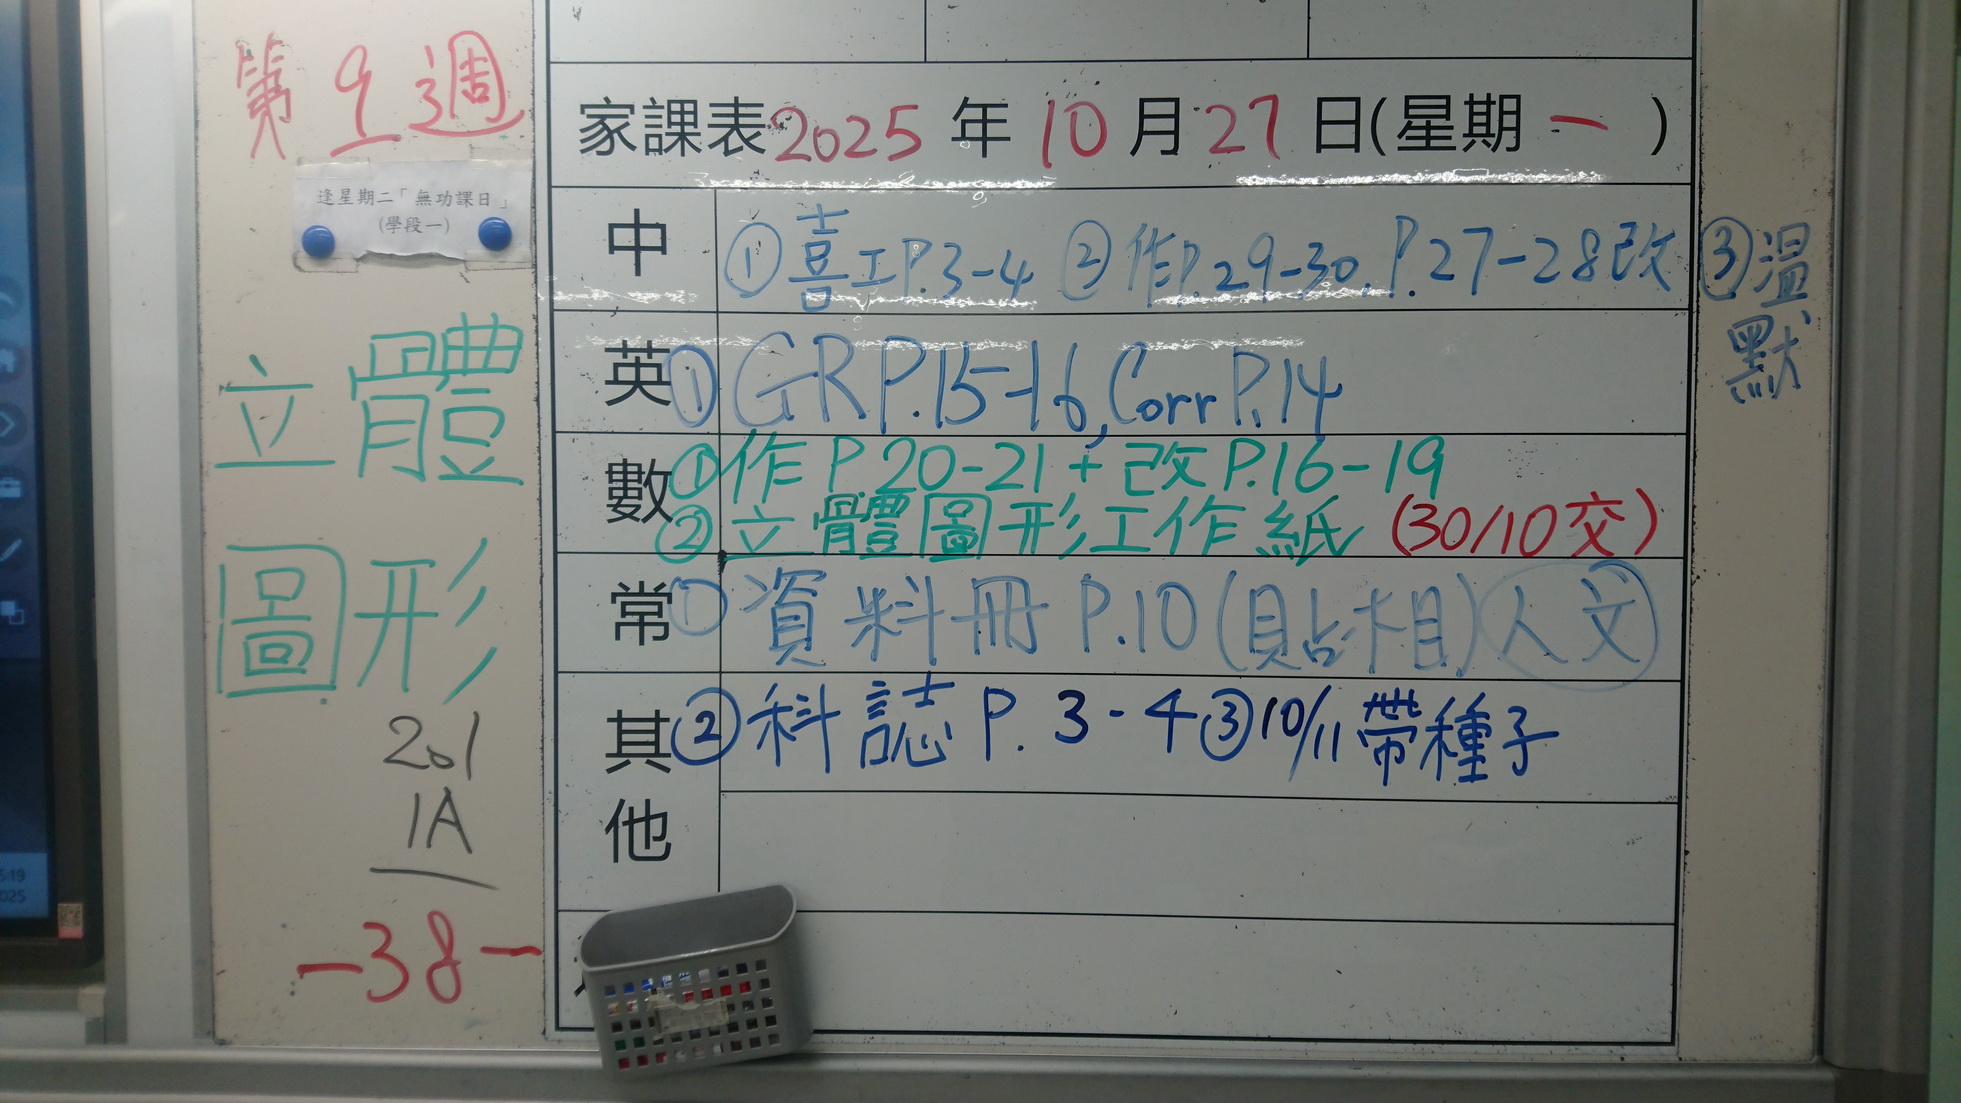 第9週
逢星期二「無功課日」
(學段一)
立體
圖形
201
1A
-38-
家課表2025年10月27日(星期一)
中 ①喜工P.3-4 ②作P.29-30, P.27-28改 ③溫
默
英 ①GR P.15-16, Corr P.14
數 ①作P 20-21 + 改P.16-19
②立體圖形工作紙 (30/10交)
常 ①資料冊 P.10 (貼相) 人文
其他 ②科誌 P. 3-4 ③10/11帶種子